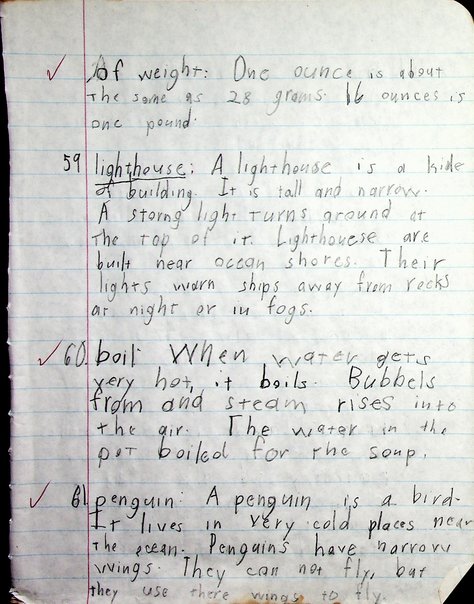 of weight: One ounce is about
the same as 28 grams. 16 ounces is
one pound.
59 lighthouse: A lighthouse is a kide
of building. It is tall and narrow.
A storng light turns ground at
the top of it. Lighthouese are
built near ocean shores. Their
lights warn ships away from rocks
at night or in fogs.
60. boil: When water gets
very hot, it boils. Bubbels
from and steam rises into
the air. The water in the
pot boiled for the soup.
61. penguin: A penguin is a bird.
It lives in very cold places near
the ocean. Penguins have narrow
wings. They can not fly, but
they use there wings to fly.